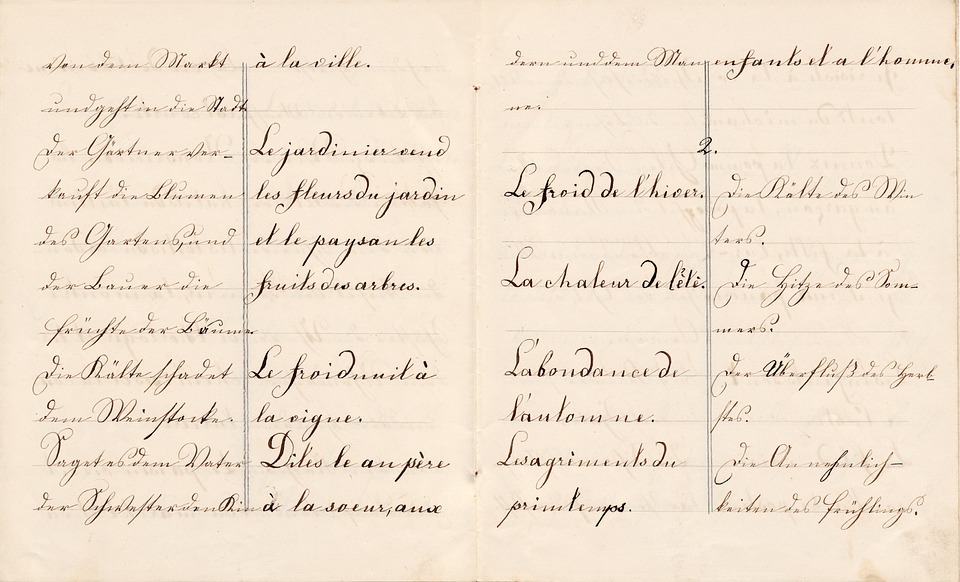 von dem Markt à la ville.
und geht in die Stadt
Der Gärtner ver- Le jardinier vend
kauft die Blumen les fleurs du jardin
des Gartens, und et le paysan les
der Bauer die fruits des arbres.
Früchte der Bäume.
Die Kälte schadet Le froid nuit à
dem Weinstocke. la vigne.
Saget es dem Vater Dites le au père
der Schwester den Kin à la soeur, aux
dern und dem Man enfants et a l'homme.
ne.
2.
Le froid de l'hiver. Die Kälte des Win
ters.
La chaleur de l'été. Die Hitze des Som-
mers.
L'abondance de Der Überfluß des Herb
l'automne. stes.
Les agrèments du Die Annehmlich-
printemps. keiten des Frühlings.